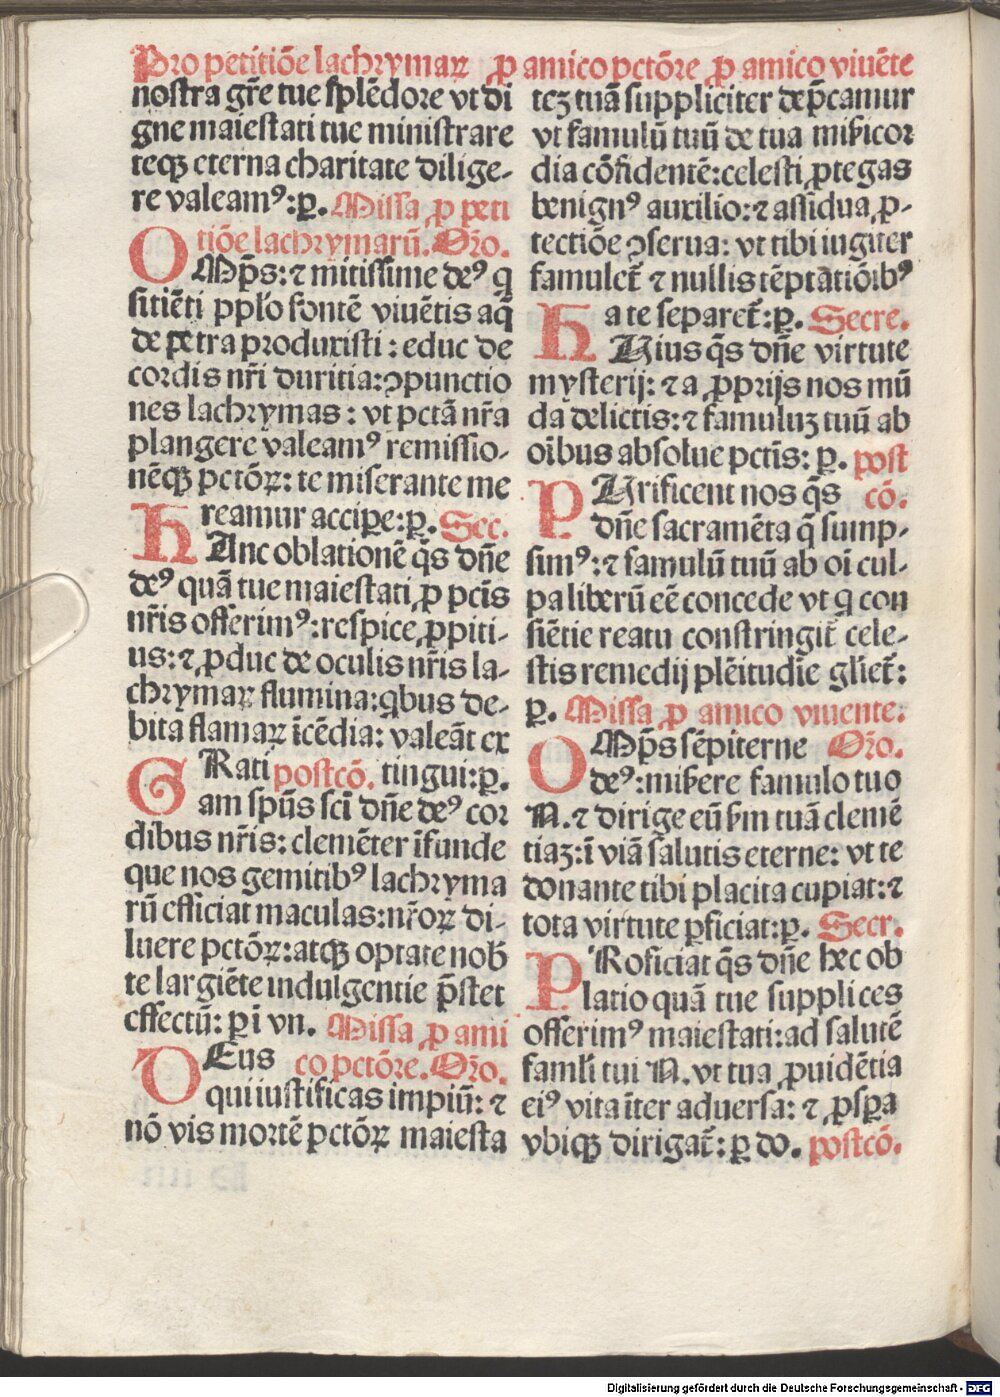 Pro petitiōe lachrymaꝝ ꝓ amico pctōre ꝓ amico viuēte
nostra gr̄e tue splēdore vt di
gne maiestati tue ministrare
teqꝫ eterna charitate dilige-
re valeamꝰ: ꝑ. Missa ꝓ peti
tiōe lachrymarū. Or̄o.
OMp̄s: ⁊ mitissime deꝰ q
sitiēti pplo fontē viuētis aq̄
de petra produxisti: educ de
cordis nr̄i duritia: ꝯpunctio
nes lachrymas: vt pctā nr̄a
plangere valeamꝰ remissio-
nēqꝫ pctōꝝ: te miserante me
reamur accipe: ꝑ. Sec.
HAnc oblationē q̄s dn̄e
deꝰ quā tue maiestati ꝓ pctīs
nr̄is offerimꝰ: respice ꝓpiti-
us: ⁊ ꝓduc de oculis nr̄is la-
chrymaꝝ flumina: qbus de-
bita flamaꝝ īcēdia: valeāt ex
tingui: ꝑ. postcō.
GRati
am spūs sci dn̄e deꝰ cor
dibus nr̄is: clemēter īfunde
que nos gemitibꝰ lachryma
rū efficiat maculas: nr̄oꝝ di-
luere pctōꝝ: atqꝫ optate nob̄
te largiēte indulgentie p̄stet
effectū: ꝑ i vn. Missa ꝓ ami
co pctōre. Or̄o.
DEus
qui iustificas impiū: ⁊
nō vis mortē pctōꝝ maiesta
teꝫ tuā suppliciter dep̄camur
vt famulū tuū de tua miẜicor
dia cōfidentē: celesti ꝓtegas
benignꝰ auxilio: ⁊ assidua ꝓ-
tectiōe ꝯserua: vt tibi iugiter
famulet̄ ⁊ nullis tēptatiōibꝰ
a te separet̄: ꝑ. Secre.
HUius q̄s dn̄e virtute
mysterij: ⁊ a ꝓprijs nos mū
da delictis: ⁊ famuluꝫ tuū ab
oībus absolue pctīs: ꝑ. post
cō.
PUrificent nos q̄s
dn̄e sacramēta q̄ sump-
simꝰ: ⁊ famulū tuū ab oī cul-
pa liberū eē concede vt q con
siētie reatu constringit̄ cele-
stis remedij plēitudīe gliet̄:
ꝑ. Missa ꝓ amico viuente.
Or̄o.
OMp̄s sēpiterne
deꝰ: miẜere famulo tuo
N. ⁊ dirige eū ẜm tuā clemē
tiaꝫ: ī viā salutis eterne: vt te
donante tibi placita cupiat: ⁊
tota virtute ꝑficiat: ꝑ. Secr.
PRoficiat q̄s dn̄e hec ob
latio quā tue supplices
offerimꝰ maiestati: ad salutē
famli tui N. vt tua ꝓuidētia
eiꝰ vita īter aduersa: ⁊ ꝓsꝑa
vbiqꝫ dirigat̄: ꝑ do. postcō.
Digitalisierung gefördert durch die Deutsche Forschungsgemeinschaft - DFG